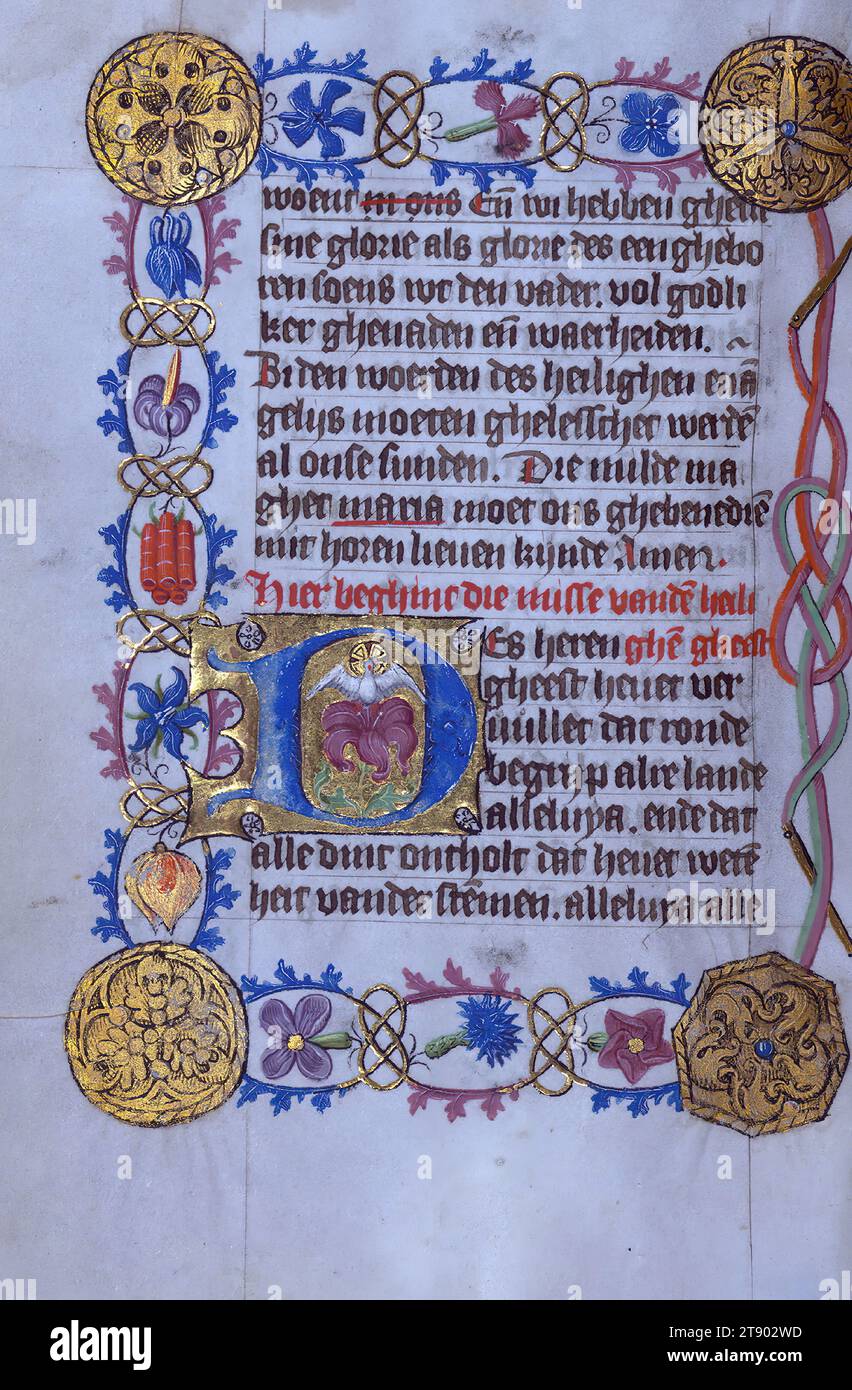 woent in ons Eñ wi hebben ghesie
sine glorie als glorie des een ghebo
ren soens wt den vader. vol godli
ker ghenaden eñ waerheiden.
Biden woerden des heilighen ewā
gelijs moeten ghelesschet werdē
al onse sunden. Die milde ma
ghet maria moet ons ghebenediē
mit horen lieuen kijnde Amen.
Hier beghint die misse vandē heili
DEs heren ghē gheest
gheest heuet ver
vullet dat ronde
begrijp alre lande
alleluya. ende dat
alle dinc ontholt dat heuet wetē
heit vander stēmen. alleluya alle
alamy
Image ID: 2T902WD
www.alamy.com